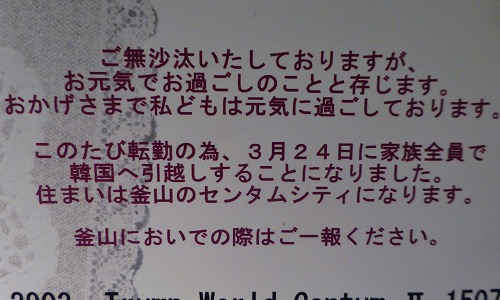 ご無沙汰いたしておりますが、
お元気でお過ごしのことと存じます。
おかげさまで私どもは元気に過ごしております。
このたび転勤の為、３月２４日に家族全員で
韓国へ引越しすることになりました。
住まいは釜山のセンタムシティになります。
釜山においでの際はご一報ください。
2902 Trump World Centum Ⅱ 1507